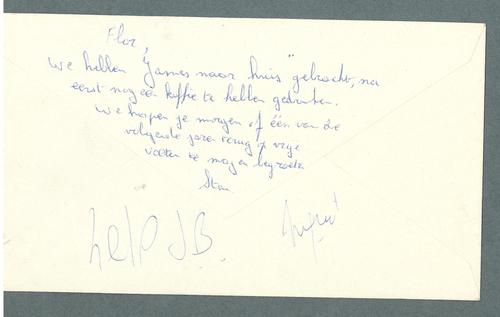 Flor,
We hebben "James naar huis" gebracht, na
eerst nog een koffie te hebben gedronken.
We hopen je morgen of één van de
volgende jaren terug op vrije
voeten te mogen begroeten
Stan
help JB.